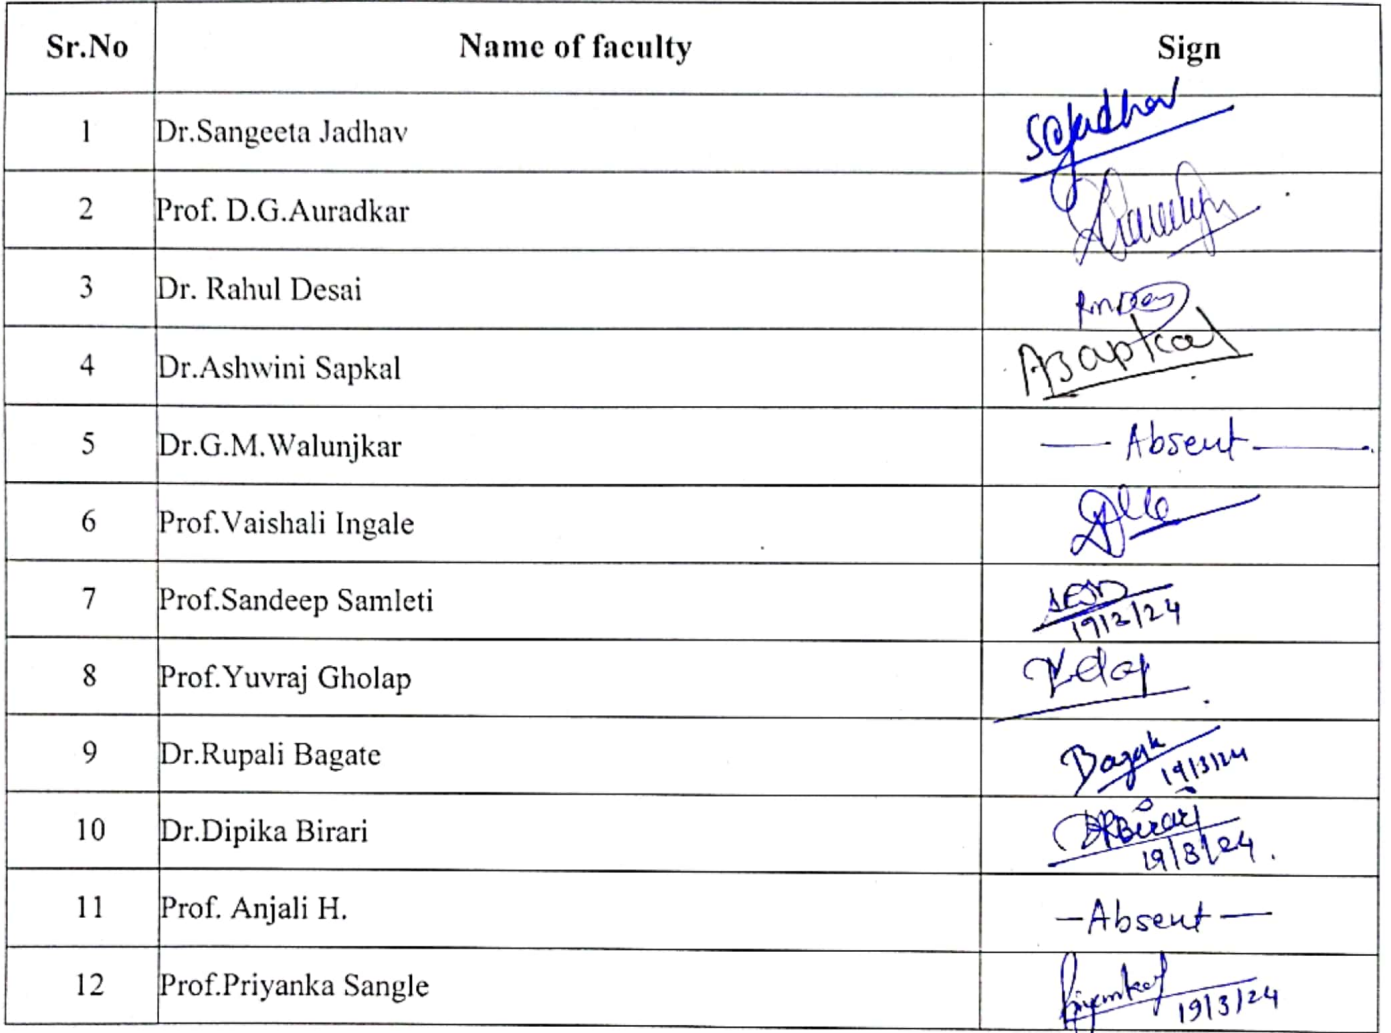 Sr.No Name of faculty Sign
1 Dr.Sangeeta Jadhav SGJadhav
2 Prof. D.G.Auradkar
3 Dr. Rahul Desai
4 Dr.Ashwini Sapkal ASapkal
5 Dr.G.M.Walunjkar — Absent —
6 Prof.Vaishali Ingale
7 Prof.Sandeep Samleti
19/3/24
8 Prof.Yuvraj Gholap
9 Dr.Rupali Bagate 19/3/24
10 Dr.Dipika Birari DRBirari
19/3/24
11 Prof. Anjali H. — Absent —
12 Prof.Priyanka Sangle 19/3/24